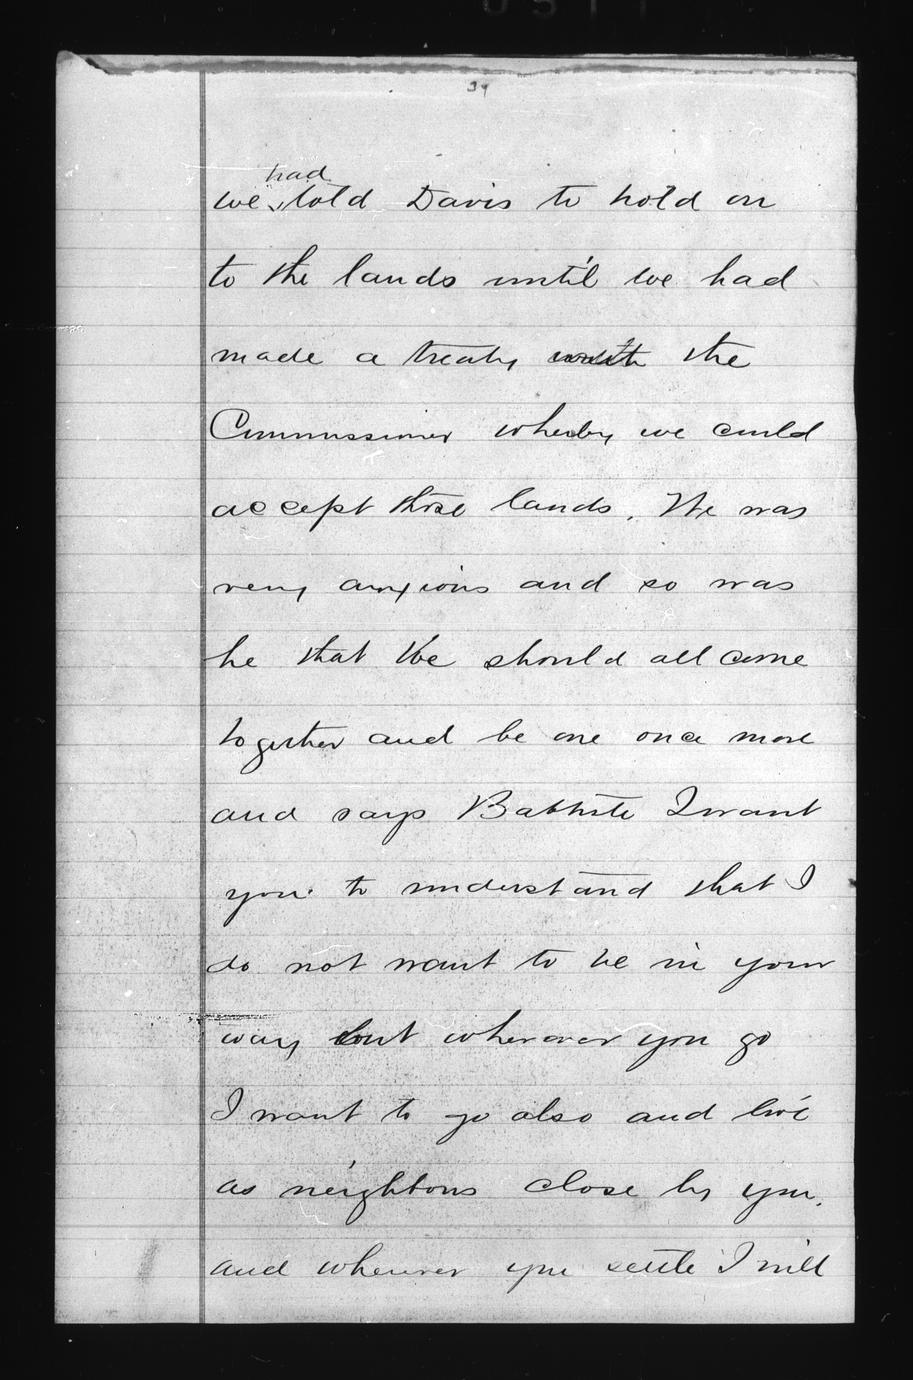 had
we told Davis to hold on
to the lands until we had
made a treaty with the
Commissioner wherby we could
accept those lands. He was
very anxious and so was
he that we should all come
together and be one once more
and says Battiste I want
you to understand that I
do not want to be in your
way but wherever you go
I want to go also and live
as neighbors close by you.
and wherever you settle I will